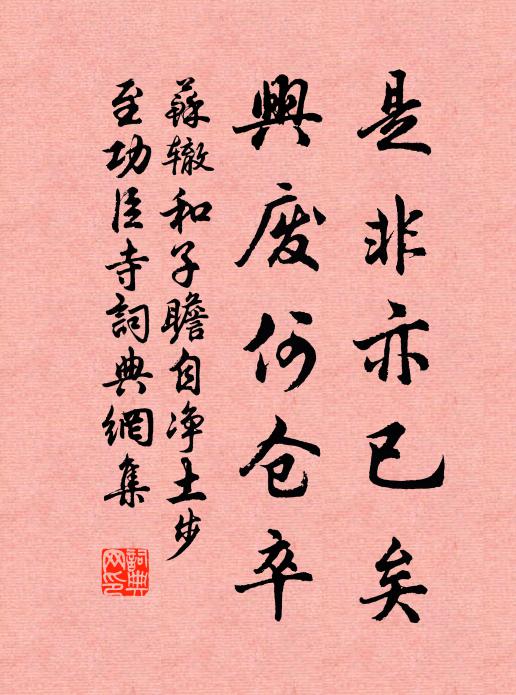 是非亦已矣
興废何仓卒
蘇辙和子瞻自净土步
至功臣寺詞典網集
詞典
网印